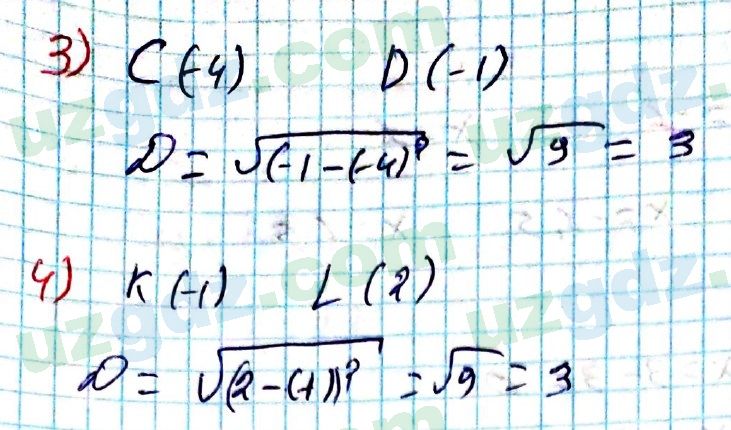 3) C (-4) D (-1)
D = √(-1-(-4)² = √9 = 3
4) K (-1) L (2)
D = √(2-(-1))² = √9 = 3
uzgdz.com
uzgdz.com
uzgdz.
uzgdz.